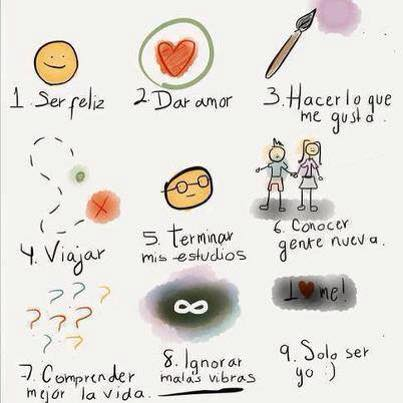 1. Ser feliz
2. Dar amor
3. Hacer lo que
me gusta.
4. Viajar
5. terminar
mis estudios
6. Conocer
gente nueva.
? ? ?
? ? ?
? ?
7. Comprender
mejor la vida.
8. Ignorar
malas vibras
I ♥ me!
9. Solo ser
yo :)